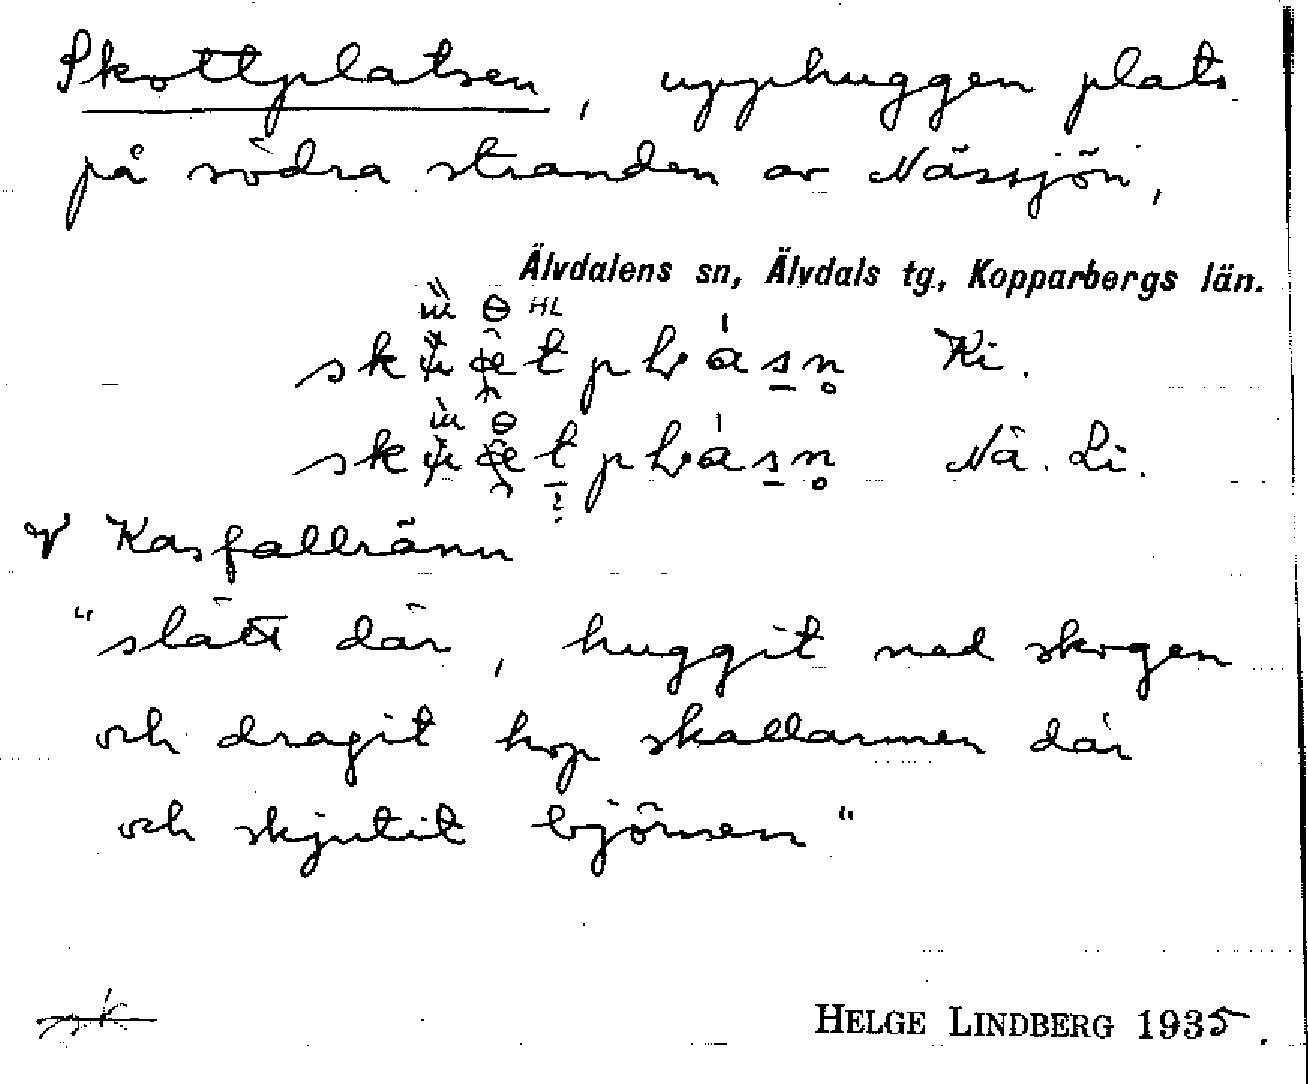 Skottplatsen, upphuggen plats
på södra stranden av Nässjön,
Älvdalens sn, Älvdals tg., Kopparbergs län.
HL
Ki.
Nä. Li.
V Kasfallränn
"slätt där, huggit ned skogen
och dragit hop skallarmen där
och skjutit björnen"
HELGE LINDBERG 1935.